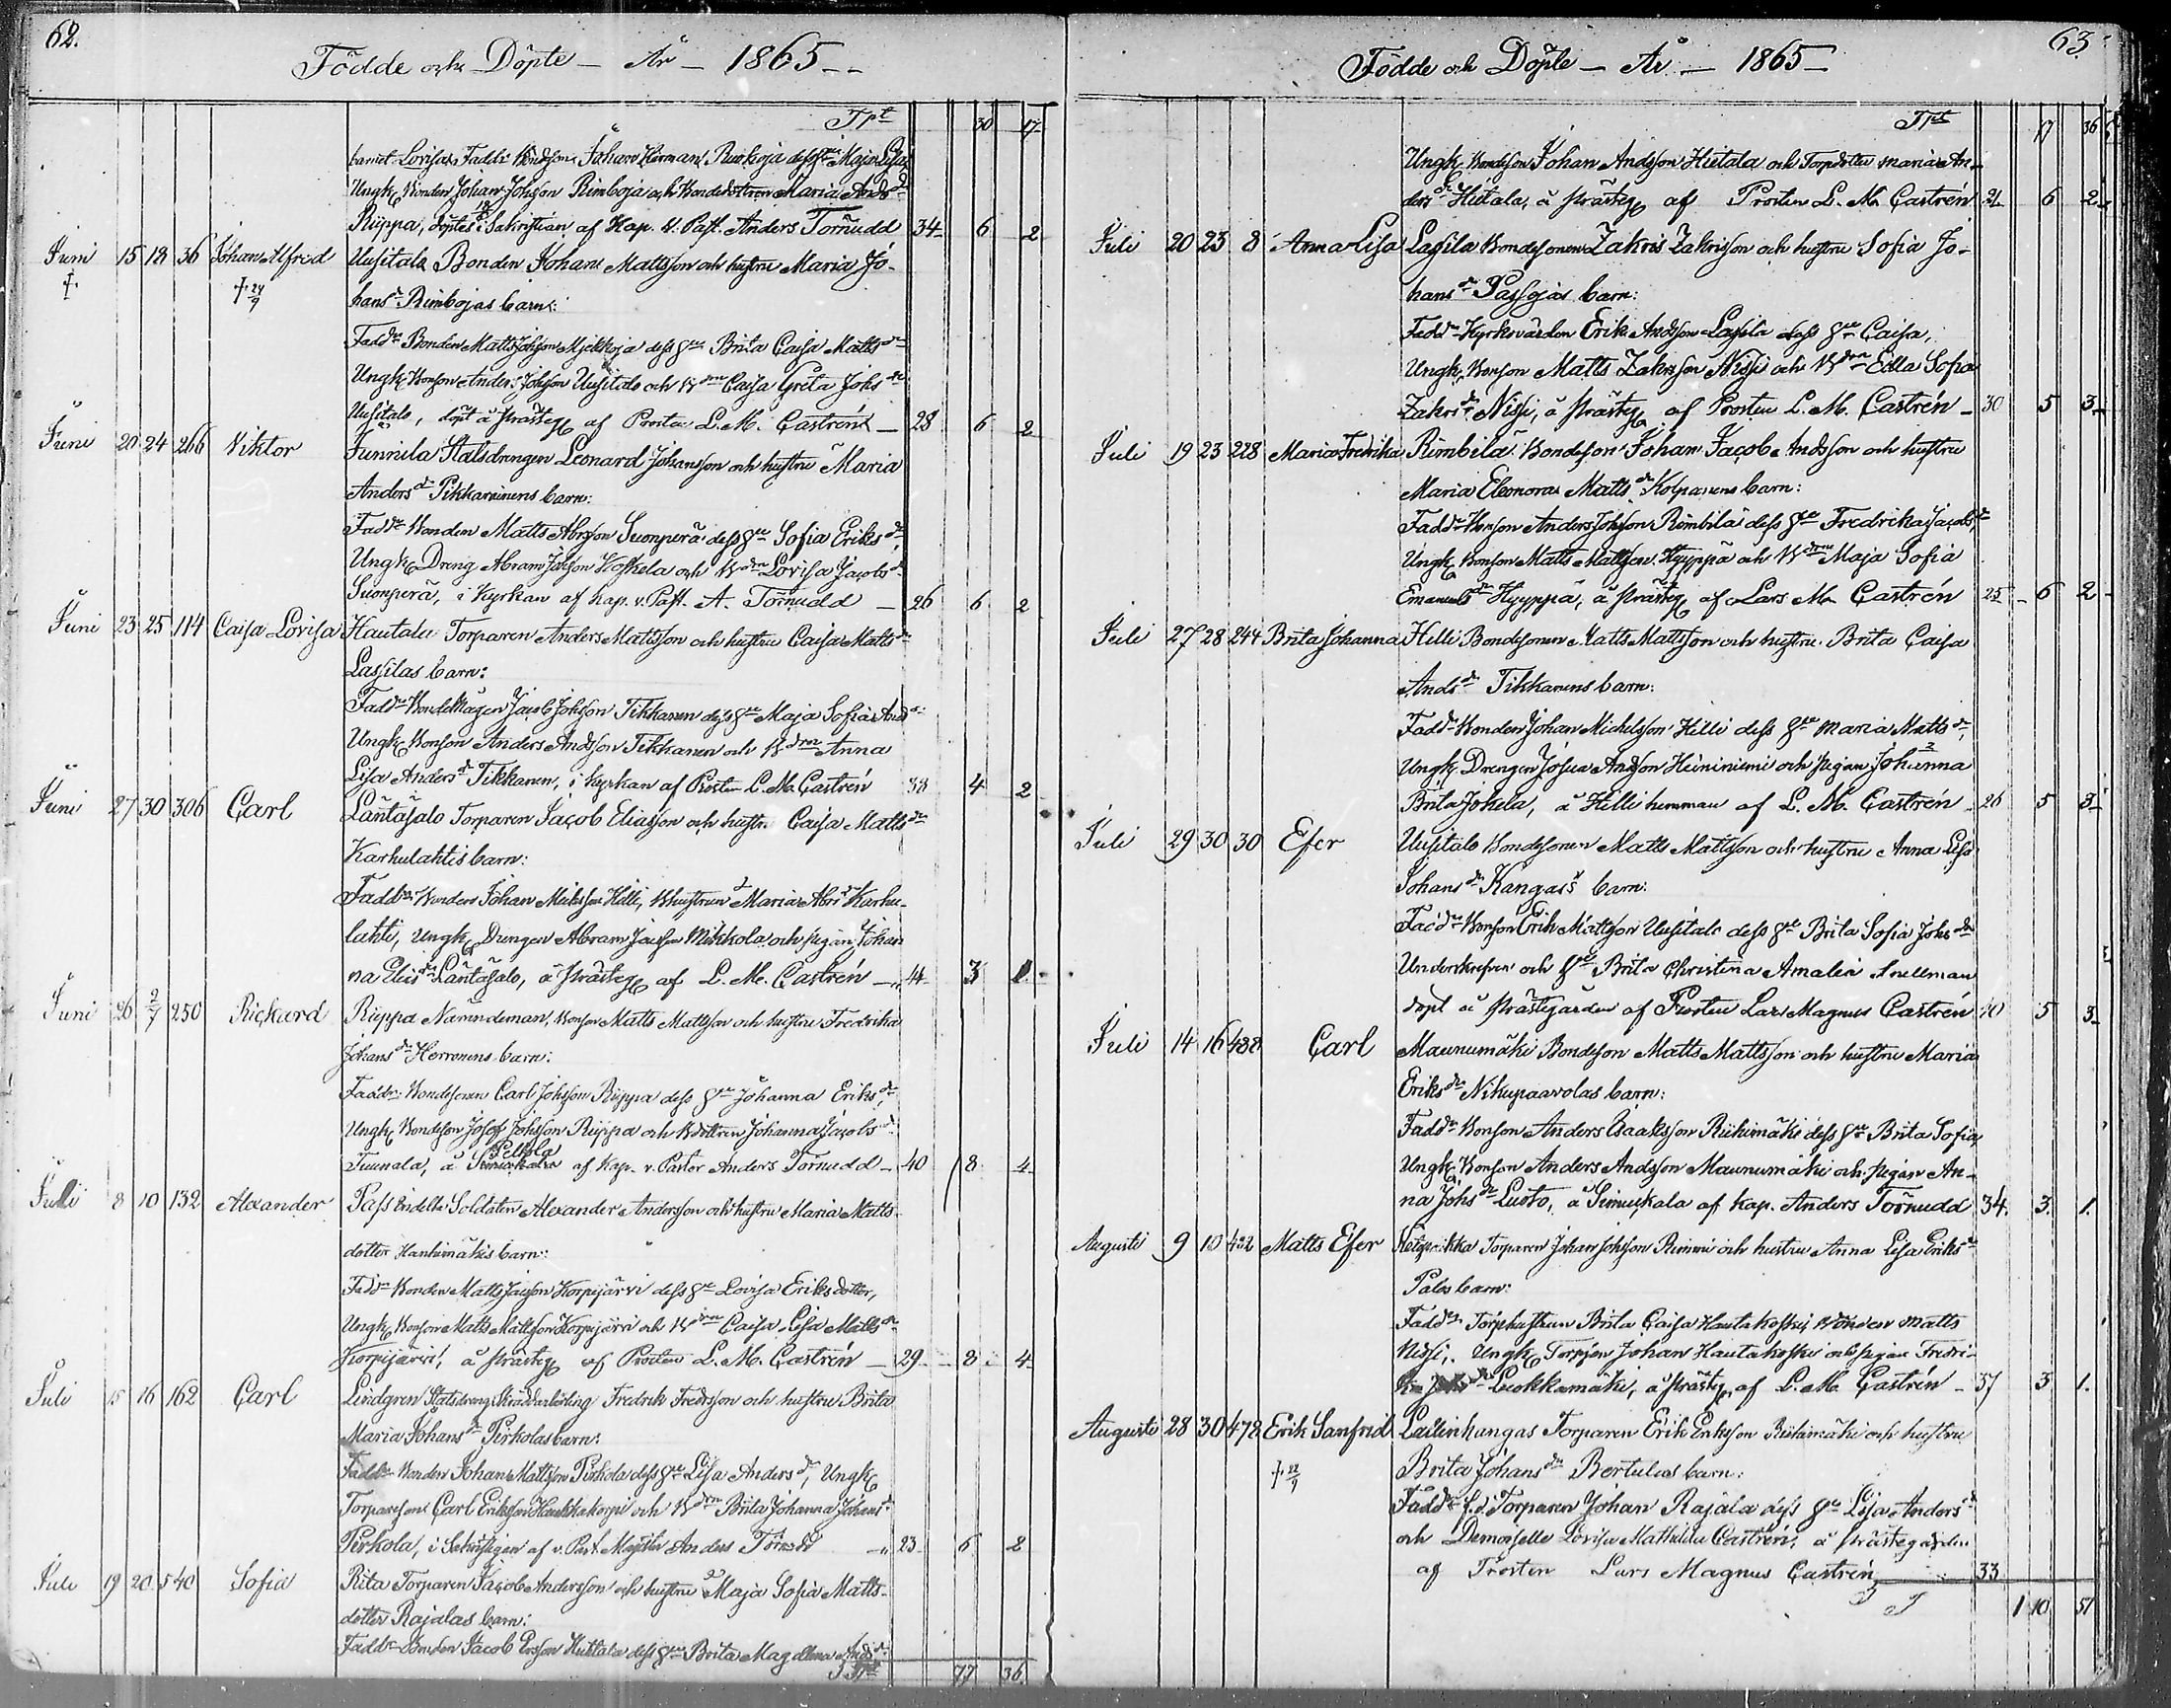 62.
Födde och Döpte — År — 1865 —
Tpt 30 17
barnet Lovisa. Fadd: Bondson Johan Herman
Ungk. Bonden Johan Johsson Rimboja och Bondedottren Maria Ands dr
Riippa, döptes i Sakristian af Kap. V. Past. Anders Törnudd 34 6 2
Juni 15 18 36 Johan Alfred Uusitalo Bonden Johan Mattsson och hustru Maria Jo-
† † 24/9 hans dr Rimbojas barn:
Fadd: Bonden Matts Johsson dess hu Brita Caisa Matts dr
Ungk. Bonson Anders Johsson Uusitalo och B.dr Caisa Greta Johs dr
Uusitalo, döpt å prästeg. af Prosten L. M. Castrén — 28 6 2
Juni 20 24 266 Viktor Junnila Statsdrengen Leonard Johansson och hustru Maria
Anders dr Pikkarainens barn:
Fadd: Bonden Matts Abrsson Suonperä dess hu Sofia Eriks dr
Ungk. Dreng Abram Jacsson Koskela och B.drn Lovisa Jacobs dr
Suonperä, i Kyrkan af Kap. v. Past. A. Törnudd — 26 6 2
Juni 23 25 114 Caisa Lovisa Hautala Torparen Anders Mattsson och hustru Caisa Matts dr
Lassilas barn:
Fadd: Bondemågen Jacob Johsson Tikkanen dess hu Maja Sofia Ands dr
Ungk. Bonson Anders Andsson Tikkanen och B.drn Anna
Lisa Anders dr Tikkanen, i kyrkan af Prosten L. M. Castrén 38 4 2
Juni 27 30 306 Carl Läntäsalo Torparen Jacob Eliasson och hustru Caisa Matts dr
Karhulahtis barn:
Fadd: Bonden Johan Micksson Hilli, Bhustrun Maria Abrs dr Karhu-
lahti, Ungk. Drengen Abram Jacsson Mikkola och pigan Johan
na Elias dr Läntäsalo, å prästeg. af L. M. Castrén — 44 3 1.
Juni 26 2/7 250 Rickard Riippa Nämndeman, Bonson Matts Mattsson och hustru Fredrika
Johans dr Herronens barn:
Fadd: Bondsonen Carl Johsson Riippa dess hu Johanna Eriks dr,
Ungk. Bondson Josef Johsson Riippa och B.dottren Johanna Jacobs dr
Pelkola
Tuunala, å af Kap. v. Pastor Anders Törnudd — 40 8 4
Juli 8 10 132 Alexander Pass Indelta Soldaten Alexander Andersson och hustru Maria Matts-
dotter Hanhimäkis barn:
Fadd: Bonden Matts Jacsson Korpijärvi dess hu Lovisa Eriksdotter,
Ungk. Bonson Matts Mattsson Korpijärvi och B.drn Caisa Lisa Matts dr
Korpijärvi, å prästeg. af Prosten L. M. Castrén — 29 8 4
Juli 15 16 162 Carl Lindgren Statsdreng Skräddarlärling Fredrik Fredsson och hustru Brita
Maria Johans dr Pirkolas barn:
Fadd: Bonden Johan Mattsson Pirkola dess hu Lisa Anders dr, Ungk.
Torparesson Carl Eriksson Haukkakorpi och B.drn Brita Johanna Johans dr
Pirkola, i Sakristigan af v. Past. Magister Anders Törnudd — 23 6 2
Juli 19 20 540 Sofia Rita Torparen Jacob Andersson och hustru Maja Sofia Matts-
dotter Rajalas barn:
Fadd: Bonden Jacob Ersson Hietala dess hu Brita Magdlena Ands dr
Tpt 77 36
63.
Födde och Döpte — År — 1865 —
Tpt 77 36
Ungk. Bondson Johan Andsson Hietala och Torpdotter Maria An-
ders dr Hietala, å prästeg. af Prosten L. M. Castrén 21 6 2
Juli 20 23 8 Anna Lisa Lassila Bondesonen Zakris Zakrisson och hustru Sofia Jo-
hans dr Passojas barn:
Fadd: Kyrkovärden Erik Andsson Lassila dess hu Caisa,
Ungk. Bonson Matts Zakrisson Nissi och B.drn Edla Sofia
Zakris dr Nissi, å prästeg. af Prosten L. M. Castrén — 30 5 3
Juli 19 23 228 Maria Fredrika Rimbilä Bondeson Johan Jacob Andsson och hustru
Maria Eleonora Matts dr Kolpanens barn:
Fadd: Bonson Anders Johsson Rimbilä dess hu Fredrika Jacobs dr
Ungk. Bonson Matts Mattsson Hyyppä och B.drn Maja Sofia
Emanuels dr Hyyppä, å prästeg. af Lars M. Castrén 25 6 2
Juli 27 28 244 Brita Johanna Hilli Bondesonen Matts Mattsson och hustru Brita Caisa
Ands dr Tikkanens barn:
Fadd: Bonden Johan Michelsson Hilli dess hu Maria Matts dr,
Ungk. Drengen Josua Andsson Heininiemi och pigan Johanna
Brita Jokela, å Hilli hemman af L. M. Castrén — 26 5 3
Juli 29 30 30 Efer Uusitalo Bondesonen Matts Mattsson och hustru Anna Lisa
Johans dr Kangas's barn:
Fadd: Bonson Erik Mattsson Uusitalo dess hu Brita Sofia Johs dr
Underskrefven och hu Brita Christina Amalia Snellman
döpt å prästegården af Prosten Lars Magnus Castrén 40 5 3
Juli 14 16 488 Carl Maunumäki Bondeson Matts Mattsson och hustru Maria
Eriks dr Nikupaavolas barn:
Fadd: Bonson Anders Isaaksson Riihimäki dess hu Brita Sofia,
Ungk. Bonson Anders Andsson Maunumäki och pigan An-
na Johs dr Luoto, å Simuckala af Kap. Anders Törnudd 34. 3. 1.
Augusti 9 10 432 Matts Efer Torparen Johan Johsson Rimmi och hustru Anna Lisa Eriks dr
Palos barn:
Fadd: Torphustrun Brita Caisa Hautakoski, Bonden Matts
Nissi, Ungk. Torpson Johan Hautakoski och pigan Fredri-
ka Luokkamäki, å prästeg. af L. M. Castrén — 37 3 1.
Augusti 28 30 478 Erik Sanfrid Lailinkangas Torparen Erik Eriksson Riihimäki och hustru
† 22/9 Brita Johans dr Bertulas barn:
Fadd: f.d. Torparen Johan Rajala dess hu Lisa Anders dr
och Demoiselle Lovisa Mathilda Castrén, å prästegården
af Prosten Lars Magnus Castrén 33
T 1 10 51